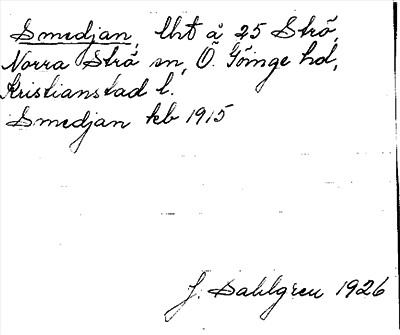 Smedjan, lht å 25 Strö,
Norra Strö sn, Ö. Göinge hd,
Kristianstad l.
Smedjan kb 1915
J. Dahlgren 1926